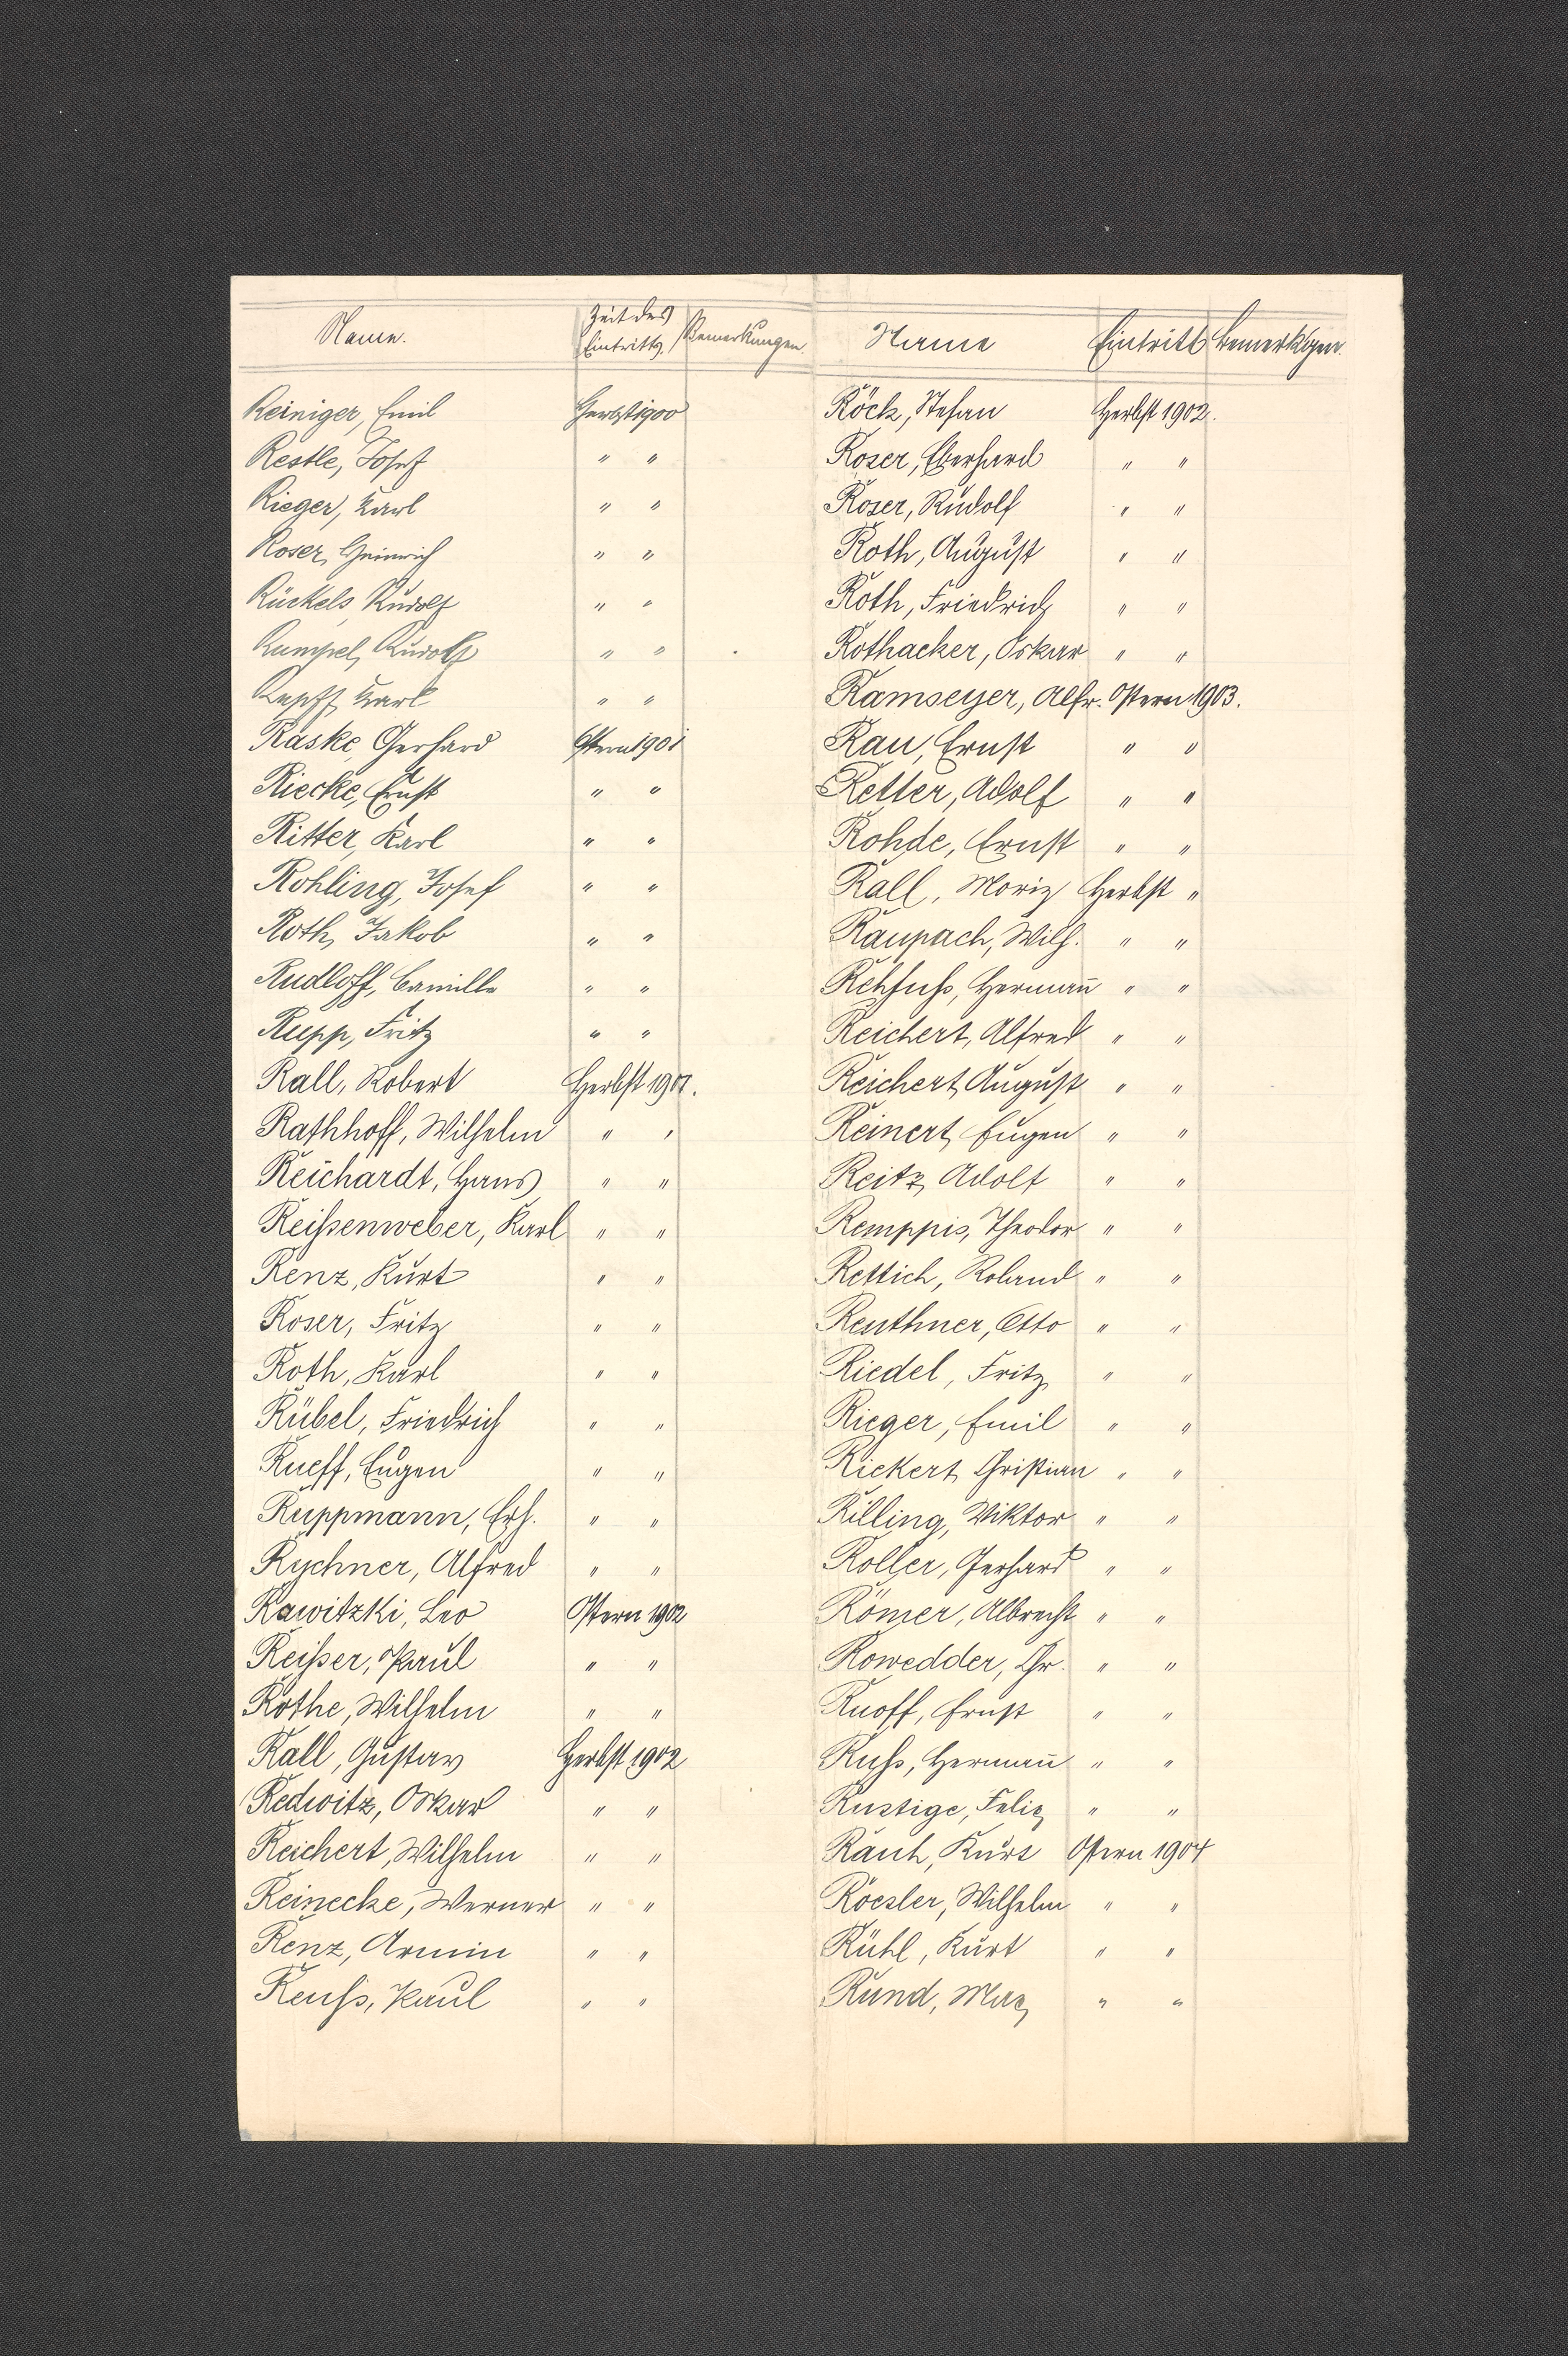 Name. Zeit des Eintritts. Bemerkungen
Reiniger, Emil Herbst 1900
Restle, Josef " "
Rieger, Karl " "
Roser, Heinrich " "
Rückels, Rudolf " "
Rumpel, Rudolf " "
Karl " "
Raske, Gerhard Ostern 1901
Riecke, Ernst " "
Ritter, Karl " "
Rohling, Josef " "
Roth, Jakob " "
Rudloff, Camille " "
Rupp, Fritz " "
Rall, Robert Herbst 1901.
Rathhoff, Wilhelm " "
Reichardt, Hans " "
Reißenweber, Karl " "
Renz, Kurt " "
Roser, Fritz " "
Roth, Karl " "
Rübel, Friedrich " "
Rueff, Eugen " "
Ruppmann, Erh. " "
Rychner, Alfred " "
Rawitzki, Leo Ostern 1902
Reißer, Paul " "
Rothe, Wilhelm " "
Rall, Gustav Herbst 1902
Redwitz, Oskar " "
Reichert, Wilhelm " "
Reinecke, Werner " "
Renz, Armin " "
Reuß, Paul " "
Name Eintritt Bemerkgen.
Röck, Stefan Herbst 1902.
Roser, Eberhard " "
Roser, Rudolf " "
Roth, August " "
Roth, Friedrich " "
Rothacker, Oskar " "
Ramseyer, Alfr. Ostern 1903.
Rau, Ernst " "
Retter, Adolf " "
Rohde, Ernst " "
Rall, Moriz Herbst "
Raupach, Wilh. " "
Rehfuß, Herman̄ " "
Reichert, Alfred " "
Reichert, August " "
Reinert, Eugen " "
Reitz, Adolf " "
Remppis, Theodor " "
Rettich, Roland " "
Reuthner, Otto " "
Riedel, Fritz " "
Rieger, Emil " "
Riekert, Christian " "
Rilling, Viktor " "
Roller, Gerhard " "
Römer, Albrecht " "
Rowedder, Chr. " "
Ruoff, Ernst " "
Ruß, Herman̄ " "
Rustige, Felix " "
Rauh, Kurt Ostern 1904
Roesler, Wilhelm " "
Rühl, Kurt " "
Rund, Max " "